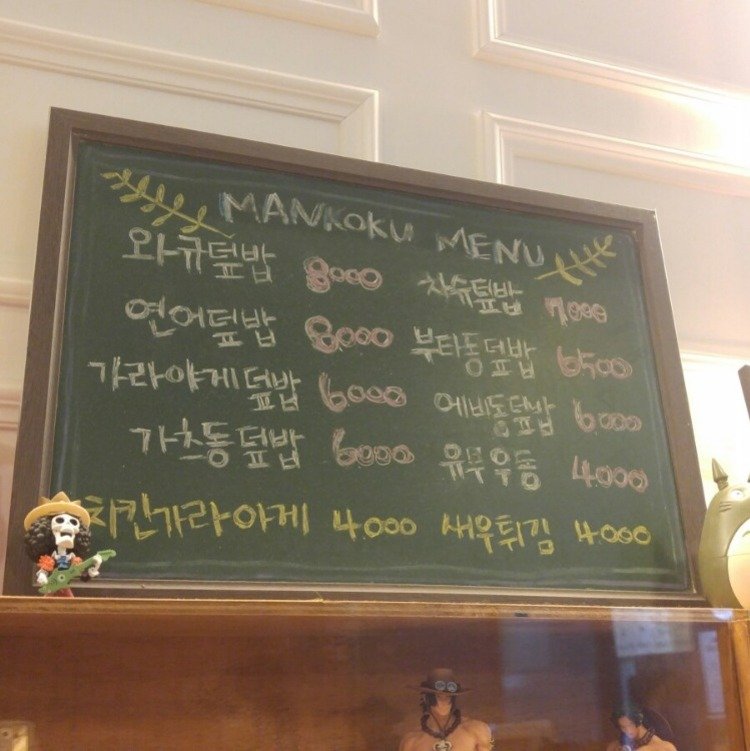 MANKOKU MENU
와규덮밥 8000 차슈덮밥 7000
연어덮밥 8000 부타동덮밥 6500
가라아게덮밥 6000 에비동덮밥 6000
가츠동덮밥 6000 유부우동 4000
치킨가라아게 4000 새우튀김 4000